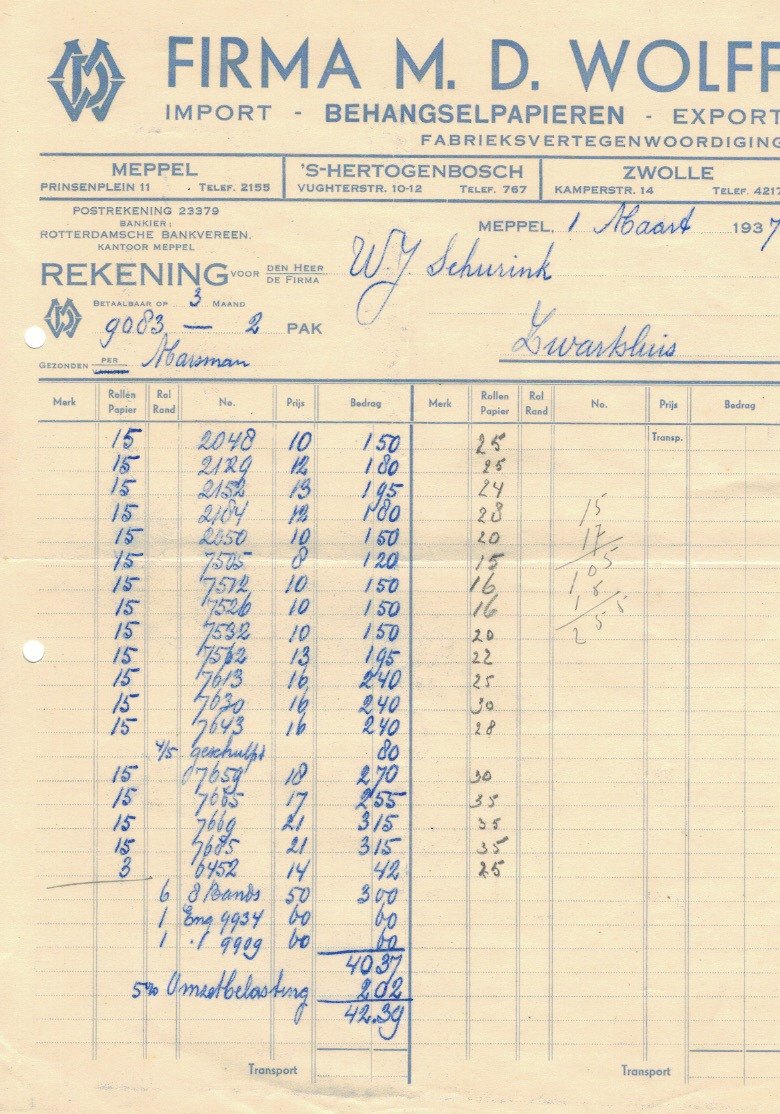 FIRMA M. D. WOLFF
IMPORT - BEHANGSELPAPIEREN - EXPORT
FABRIEKSVERTEGENWOORDIGING
MEPPEL 'S-HERTOGENBOSCH ZWOLLE
PRINSENPLEIN 11 . TELEF. 2155 VUGHTERSTR. 10-12 TELEF. 767 KAMPERSTR. 14 TELEF. 4217
POSTREKENING 23379
BANKIER:
ROTTERDAMSCHE BANKVEREEN.
KANTOOR MEPPEL
MEPPEL, 1 Maart 1937
REKENING VOOR DEN HEER
DE FIRMA
W.J. Schurink
BETAALBAAR OP 3 MAAND
9083 — 2 PAK
Zwartsluis
GEZONDEN PER Marsman
Merk Rollen Papier Rol Rand No. Prijs Bedrag Merk Rollen Papier Rol Rand No. Prijs Bedrag
15 2048 10 150 25 Transp.
15 2129 12 180 25
15 2152 13 195 24
15 2184 12 180 28 15
15 2050 10 150 20 17
15 7505 8 120 15 105
15 7512 10 150 16 15
15 7526 10 150 16 255
15 7532 10 150 20
15 7562 13 195 22
15 7613 16 240 25
15 7630 16 240 30
15 7643 16 240 28
4/5 geschulpt 80
15 7659 18 270 30
15 7665 17 255 35
15 7669 21 315 35
15 7685 21 315 35
3 6452 14 42 25
6 8 Bands 50 300
1 Eng 9934 60 60
1 9909 60 60
4037
5% Omzetbelasting 202
42.39
Transport Transport